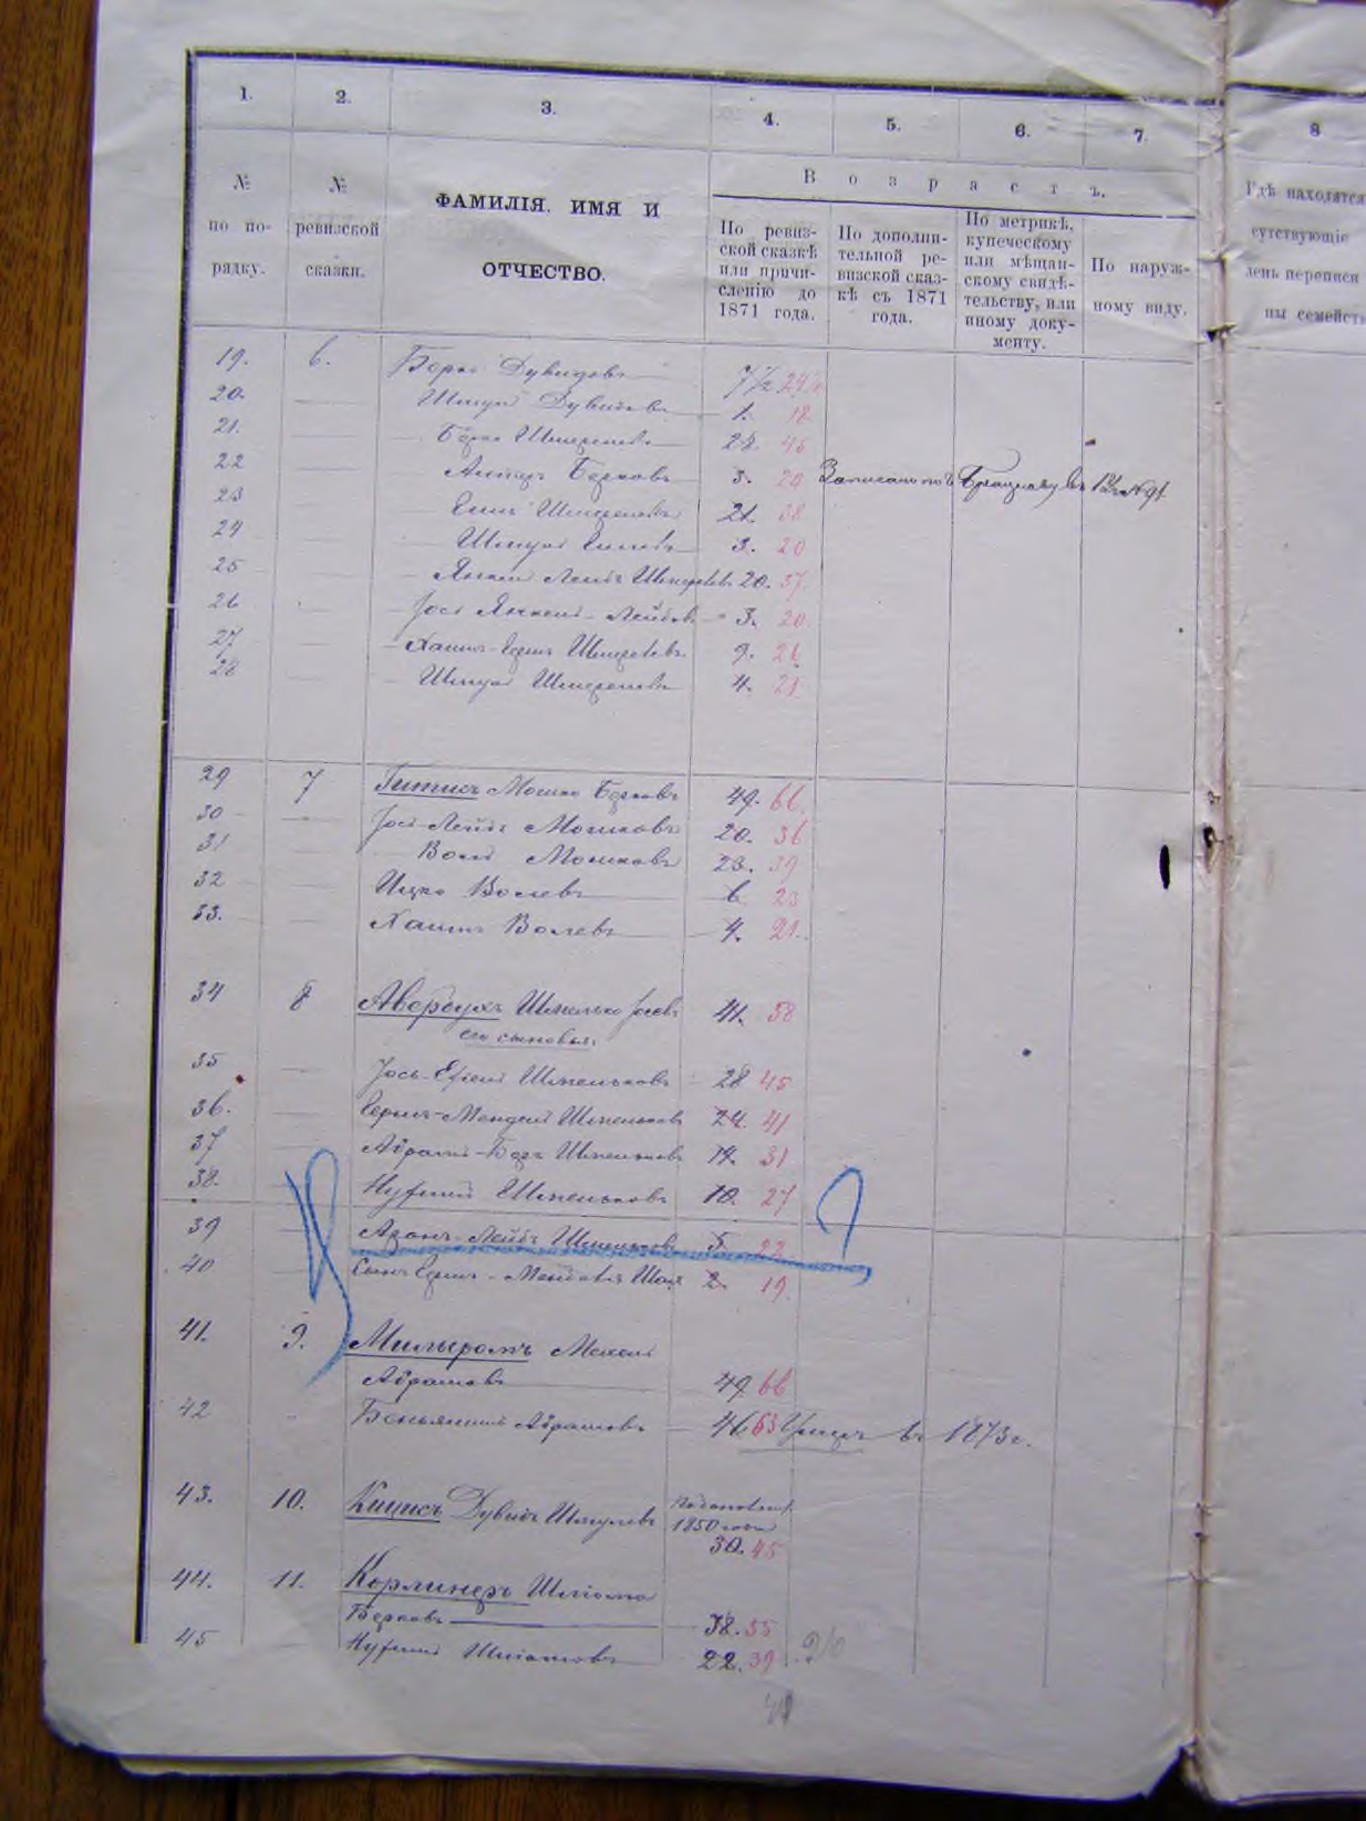 1. 2. 3. 4. 5. 6. 7. 8
№ по порядку.
№ ревизской сказки.
ФАМИЛІЯ, ИМЯ И ОТЧЕСТВО.
Возрастъ.
По ревиз-
ской сказкѣ
или причи-
сленію до
1871 года.
По дополни-
тельной ре-
визской сказ-
кѣ съ 1871
года.
По метрикѣ,
купеческому
или мѣщан-
скому свидѣ-
тельству, или
иному доку-
менту.
По наруж-
ному виду.
Гдѣ находятся
сутствующіе
день переписи
ны семейст
19. 6. Берко Дувидовъ 7½ 24½
20. Шмуль Дувидовъ 1. 18
21. Берко Шмерковъ 28. 45
22 Берковъ 3. 20 Записанъ по
23 21. 38
24 Шмуль 3. 20
25 Янкель Лейбъ 20. 37
26 Іось Янкель-Лейбовъ 3. 20
27 Хаимъ-Гершъ 9. 26
28 Шмуль 4. 21
29 7 Гитисъ Мошко Берковъ 49. 66.
30 Іось-Лейбъ Мошковъ 20. 36
31 Воль Мошковъ 23. 39
32 Ицко Волевъ 6 23
33. Хаимъ Волевъ 4. 21.
34 8 Авербухъ Шмелько Іосевъ 41. 58
его сыновья:
35 Іось-Ефроимъ Шмельковъ 28 45
36. Гершъ-Мендель Шмельковъ 24. 41
37 Абрамъ-Беръ Шмельковъ 14. 31
38. Нухимъ Шмельковъ 10. 27
39 Аронъ-Лейбъ Шмельковъ 5 22
40 Сынъ Гершъ-Менделя Шая 2. 19.
41. 9. Мильгромъ Мехель
Абрамовъ 49. 66
42 Беньяминъ Абрамовъ 46 63 Умеръ въ 1873 г.
43. 10. Кицисъ Дувидъ Шмулевъ
1850 года
30. 45
44. 11. Корлинеръ Шліома
Берковъ 38. 55
45 Нухимъ Шліомовъ 22. 39